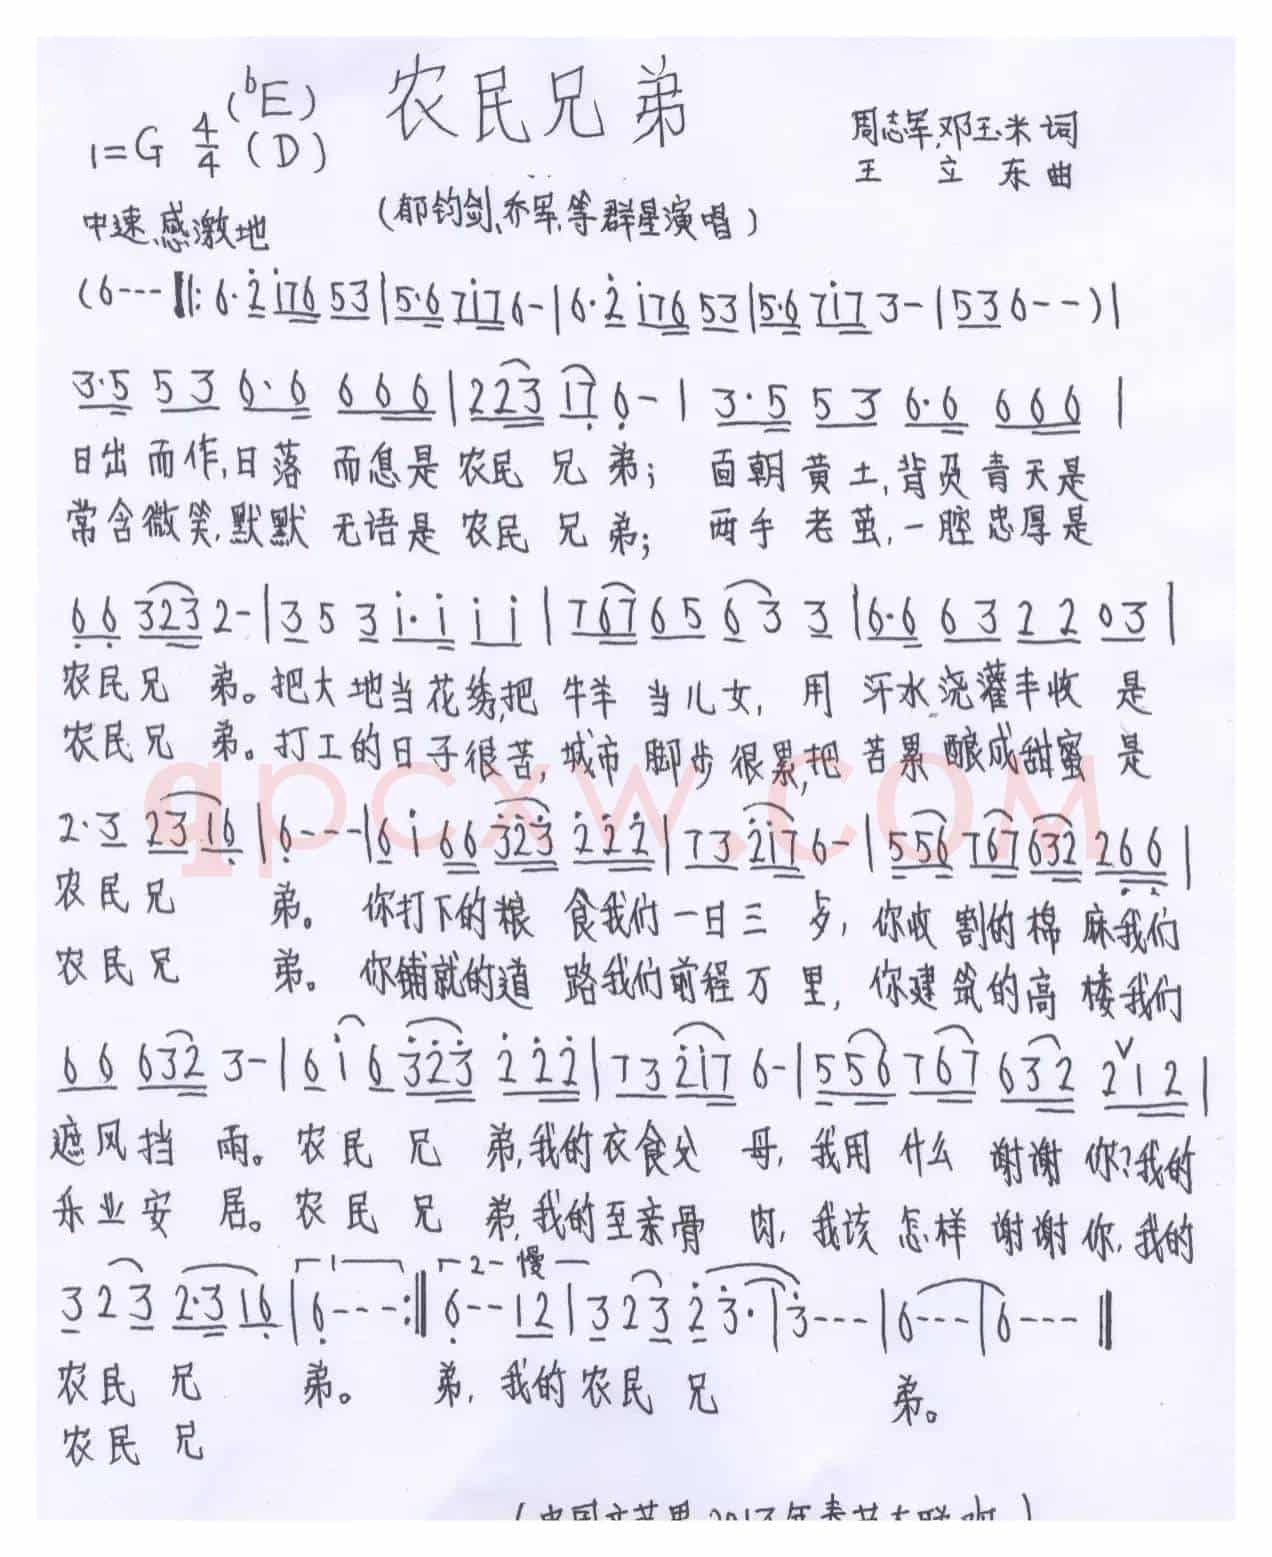 农民兄弟
1=G 4/4 (ᵇE) (D)
周志军、邓玉米词
王立东曲
中速、感激地
(郁钧剑、乔军、等群星演唱)
(6--- ‖: 6·2 176 53 | 5·6 717 6- | 6·2 176 53 | 5·6 717 3- | 53 6--) |
3·5 53 6·6 666 | 223 17 6- | 3·5 53 6·6 666 |
日出而作,日落而息是农民兄弟; 面朝黄土,背负青天是
常含微笑,默默无语是农民兄弟; 两手老茧,一腔忠厚是
66 323 2- | 3 5 3 1·1 1 1 | 767 65 63 3 | 6·6 63 22 03 |
农民兄弟。把大地当花绣,把牛羊当儿女, 用汗水浇灌丰收是
农民兄弟。打工的日子很苦,城市脚步很累,把苦累酿成甜蜜是
2·3 23 16 | 6--- | 6 1 66 323 222 | 73 217 6- | 556 767 632 266 |
农民兄弟。你打下的粮食我们一日三歺, 你收割的棉麻我们
农民兄弟。你铺就的道路我们前程万里, 你建筑的高楼我们
66 632 3- | 6 1 6 323 222 | 73 217 6- | 556 767 632 2ˇ12 |
遮风挡雨。农民兄弟,我的衣食父母, 我用什么谢谢你?我的
乐业安居。农民兄弟,我的至亲骨肉, 我该怎样谢谢你,我的
1 2 慢
3 2 3 2·3 16 | 6--- :‖ 6-- 12 | 3 2 3 2 3· | 3--- | 6--- | 6--- ‖
农民兄弟。弟,我的农民兄弟。
农民兄
qpcxw.com